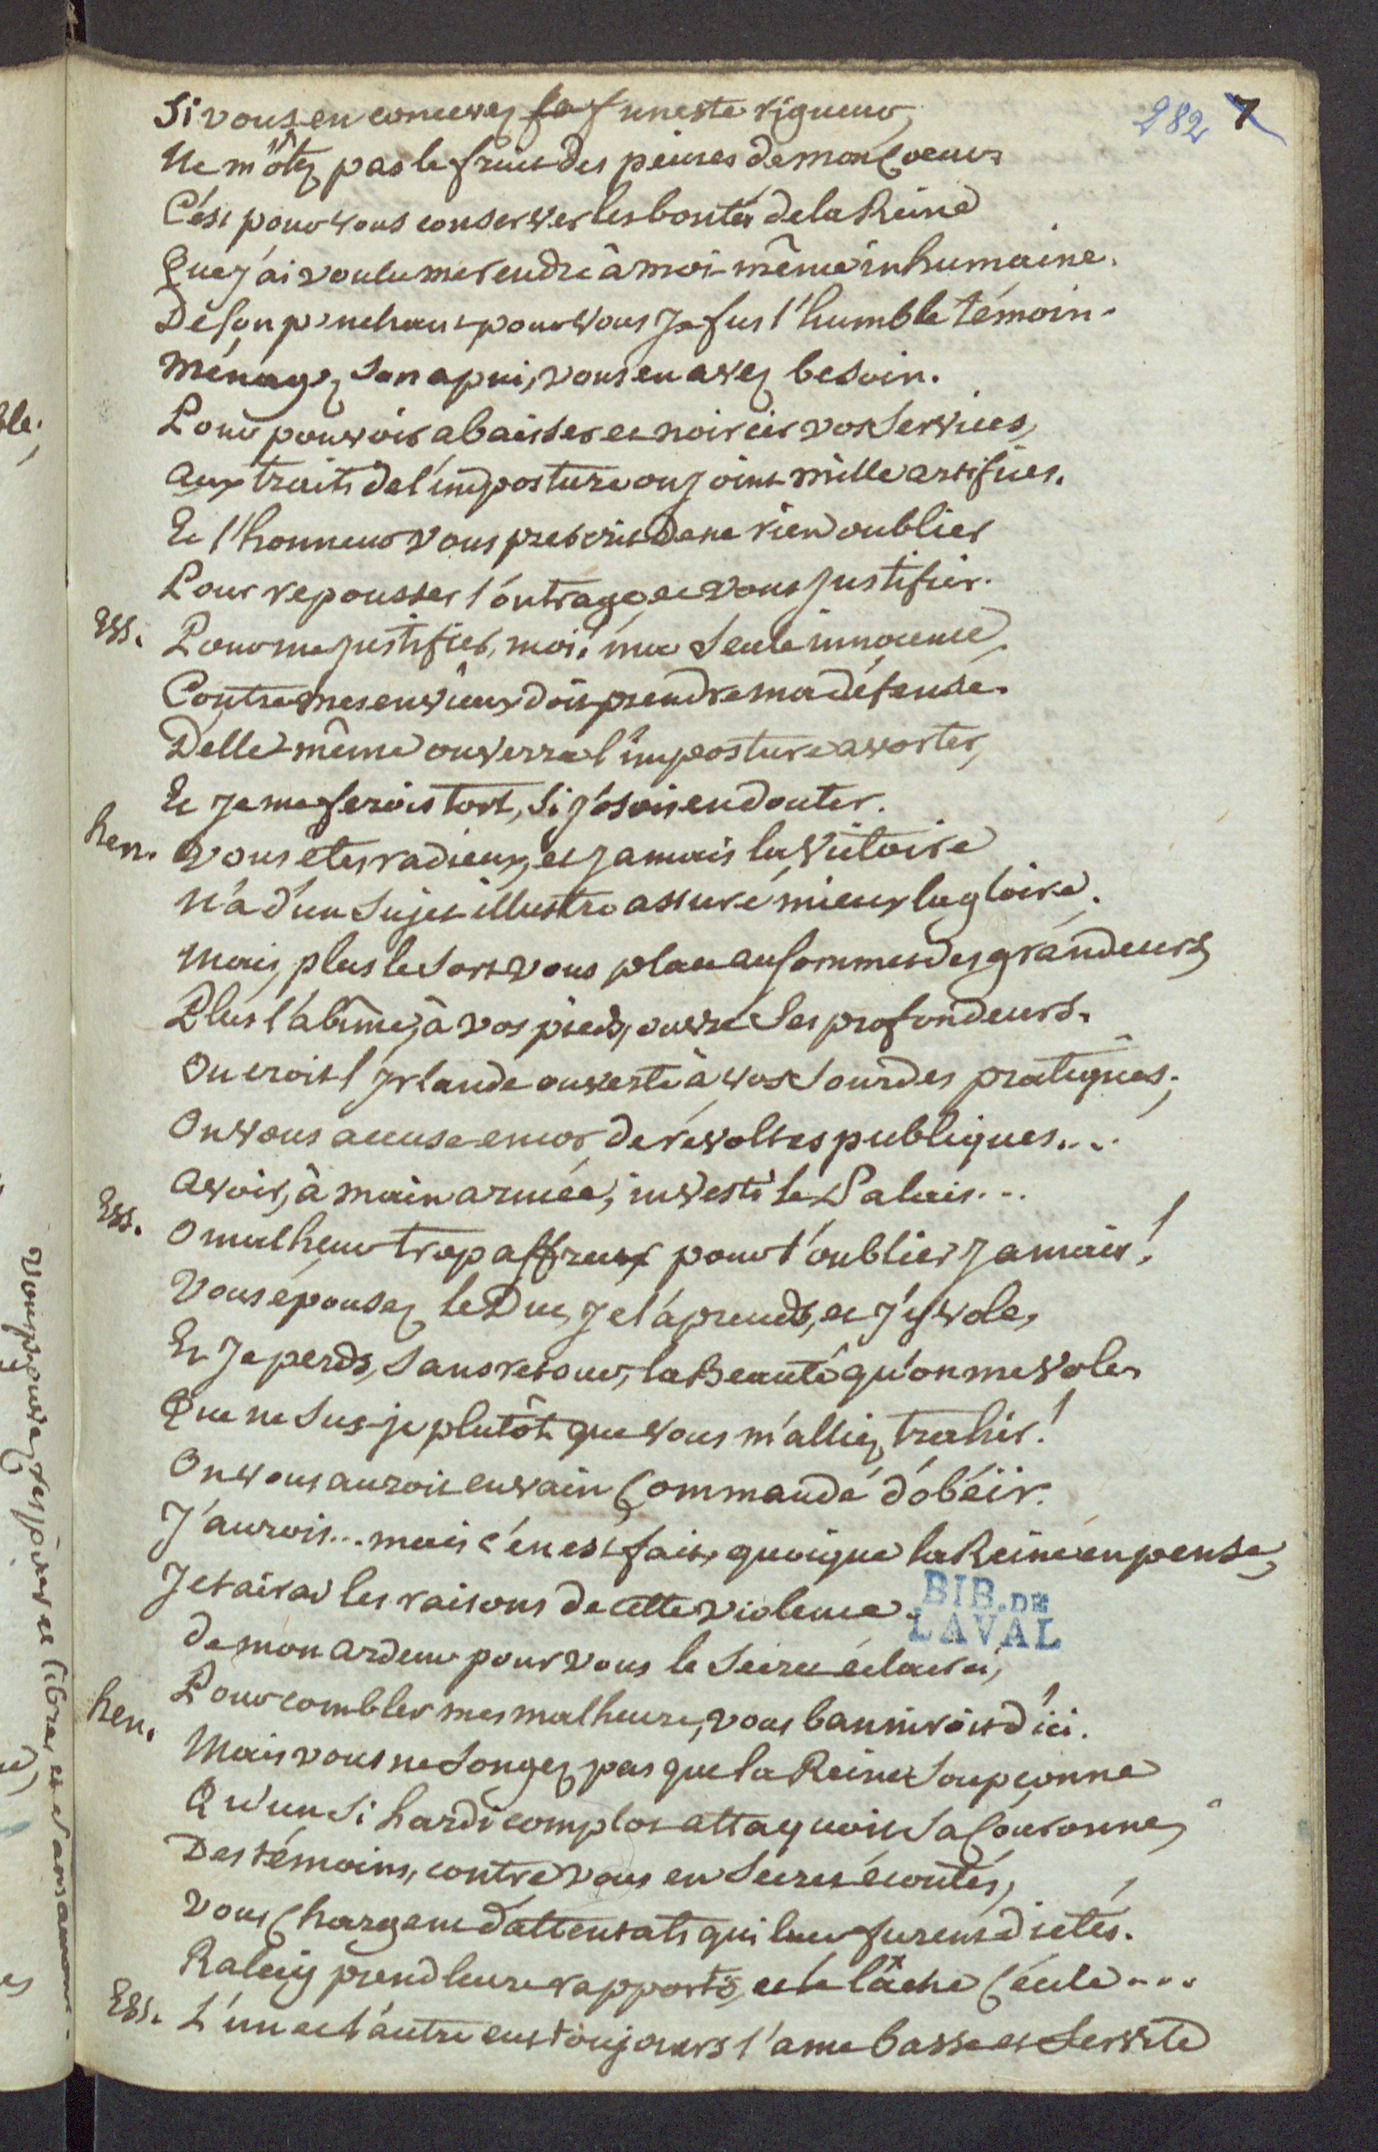 282 7
Si vous en concevez la funeste rigueur,
Ne m'ôtez pas le fruit des peines de mon Coeur
C'ést pour vous conserver les bontés de la Reine
Que j'ai voulu me rendre à moi-même inhumaine.
De son penchant pour vous Je fus l'humble témoin.
Ménagez Son apui, vous en avez besoin.
Pour pouvoir abaisser et noircir vos Services,
aux traits de l'imposture on joint mille artifices.
Et l'honneur vous prescrit De ne rien oublier
Pour repousser l'outrage, et vous Justifier.
Ess. Pour me justifier, moi! ma Seule innocence,
Contre mes envieux doit prendre ma défense.
Delle-même on verra l'imposture avorter,
Et Je me ferois tort, Si j'osois en douter.
hen. Vous êtes radieux, et jamais la Victoire
N'a d'un Sujet illustre assuré mieux la gloire.
Mais, plus le Sort vous place au Sommet des grandeurs
Plus l'abîme, à vos pieds, ouvre Ses profondeurs.
On croit l'Irlande ouverte à vos Sourdes pratiques;
On vous accuse encor de révoltes publiques...
avoir, à main armée, investi le Palais...
Ess. O malheur trop affreux pour l'oublier Jamais!
Vous épousez le Duc, Je l'aprends, et j'y vole,
Et Je perds, Sans retour, la Beauté qu'on me vole.
Que ne Sus-je plutôt que vous m'alliez trahir!
On vous auroit en vain Commandé d'obéir.
J'aurois... mais c'en est fait, quoique la Reine en pense,
Je tairai les raisons de cette violence.
de mon ardeur pour vous le Secret éclairci,
Pour combler mes malheurs, vous banniroit d'ici.
hen. Mais vous ne Songez pas que la Reine Soupçonne
Qu'un Si hardi complot attaquoit Sa Couronne,
Des témoins, contre vous en Secret écoutés,
Vous Chargent d'attentats qui leur furent dictés.
Raleig prend leurs rapports, et le lâche Cécile....
Ess. L'un et l'autre eut toujours l'ame basse et Servile
BIB. DE
LAVAL